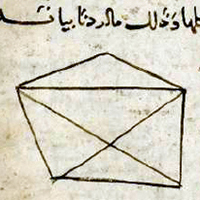 ذلك ما اردنا بيانه